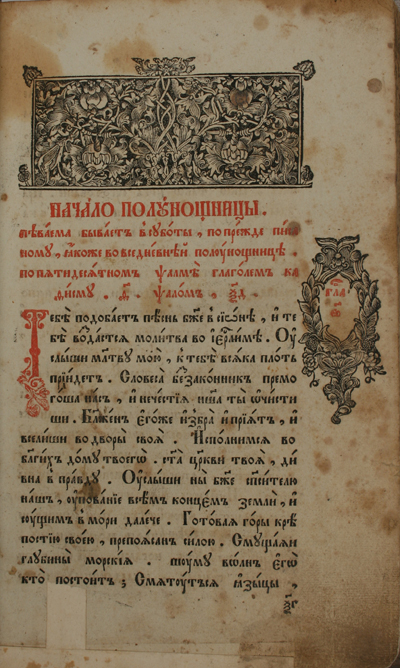 НАЧАЛО ПОЛУНОЩНИЦЫ.
пѣваема бываетъ в̾ субѡты, попрежде пи
ному, ꙗкоже во вседневнѣй полунощницѣ.
по пятидесятномъ псалмѣ глаголемъ ка
ѳисму. псаломъ,
Тебѣ подобаетъ пѣснь бж҃е в̾ сиѡнѣ, и те
бѣ воздастся молитва во іер҃лимѣ. Оу
слыши мл҃тву мою, к̾ тебѣ всяка плоть
пріидетъ. Словеса беззаконникъ премо
гоша насъ, и нечестія наша ты ѡчисти
ши. Бл҃женъ егоже избра и пріятъ, и
вселится во дворы своя. Исполнимся во
благихъ дому твоегѡ. ст҃а церкви твоя, ди
вна в̾ правду. Оуслыши ны бж҃е сп҃сителю
нашъ, оупованіе всѣмъ концемъ земли, и
сущимъ в̾ мори далече. Готовая горы крѣ
постію своею, препоясанъ силою. Смущаяи
глубины морскія. шуму волнъ егѡ
кто постоитъ; Смятутъся ꙗзыцы,